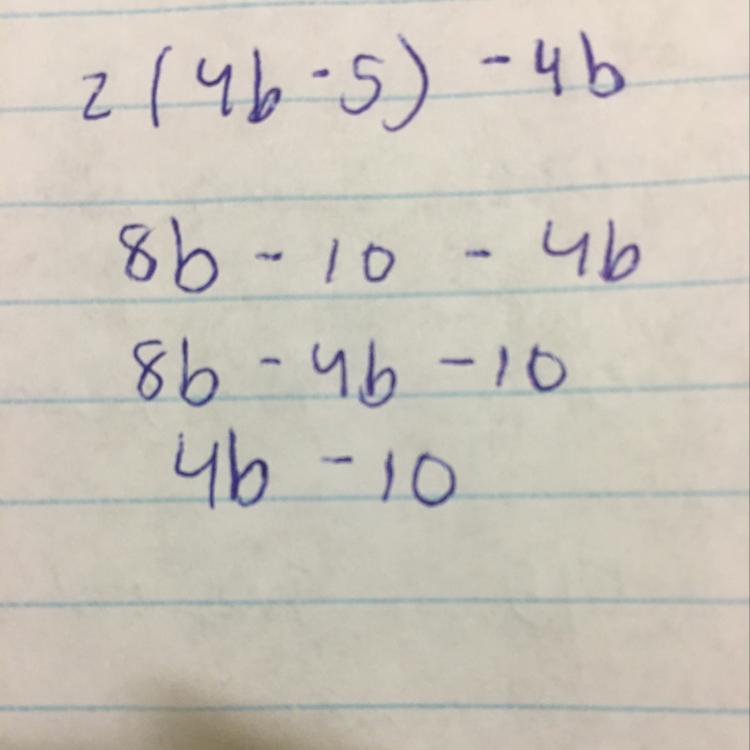 2(4b-5) -4b
8b - 10 - 4b
8b - 4b - 10
4b - 10